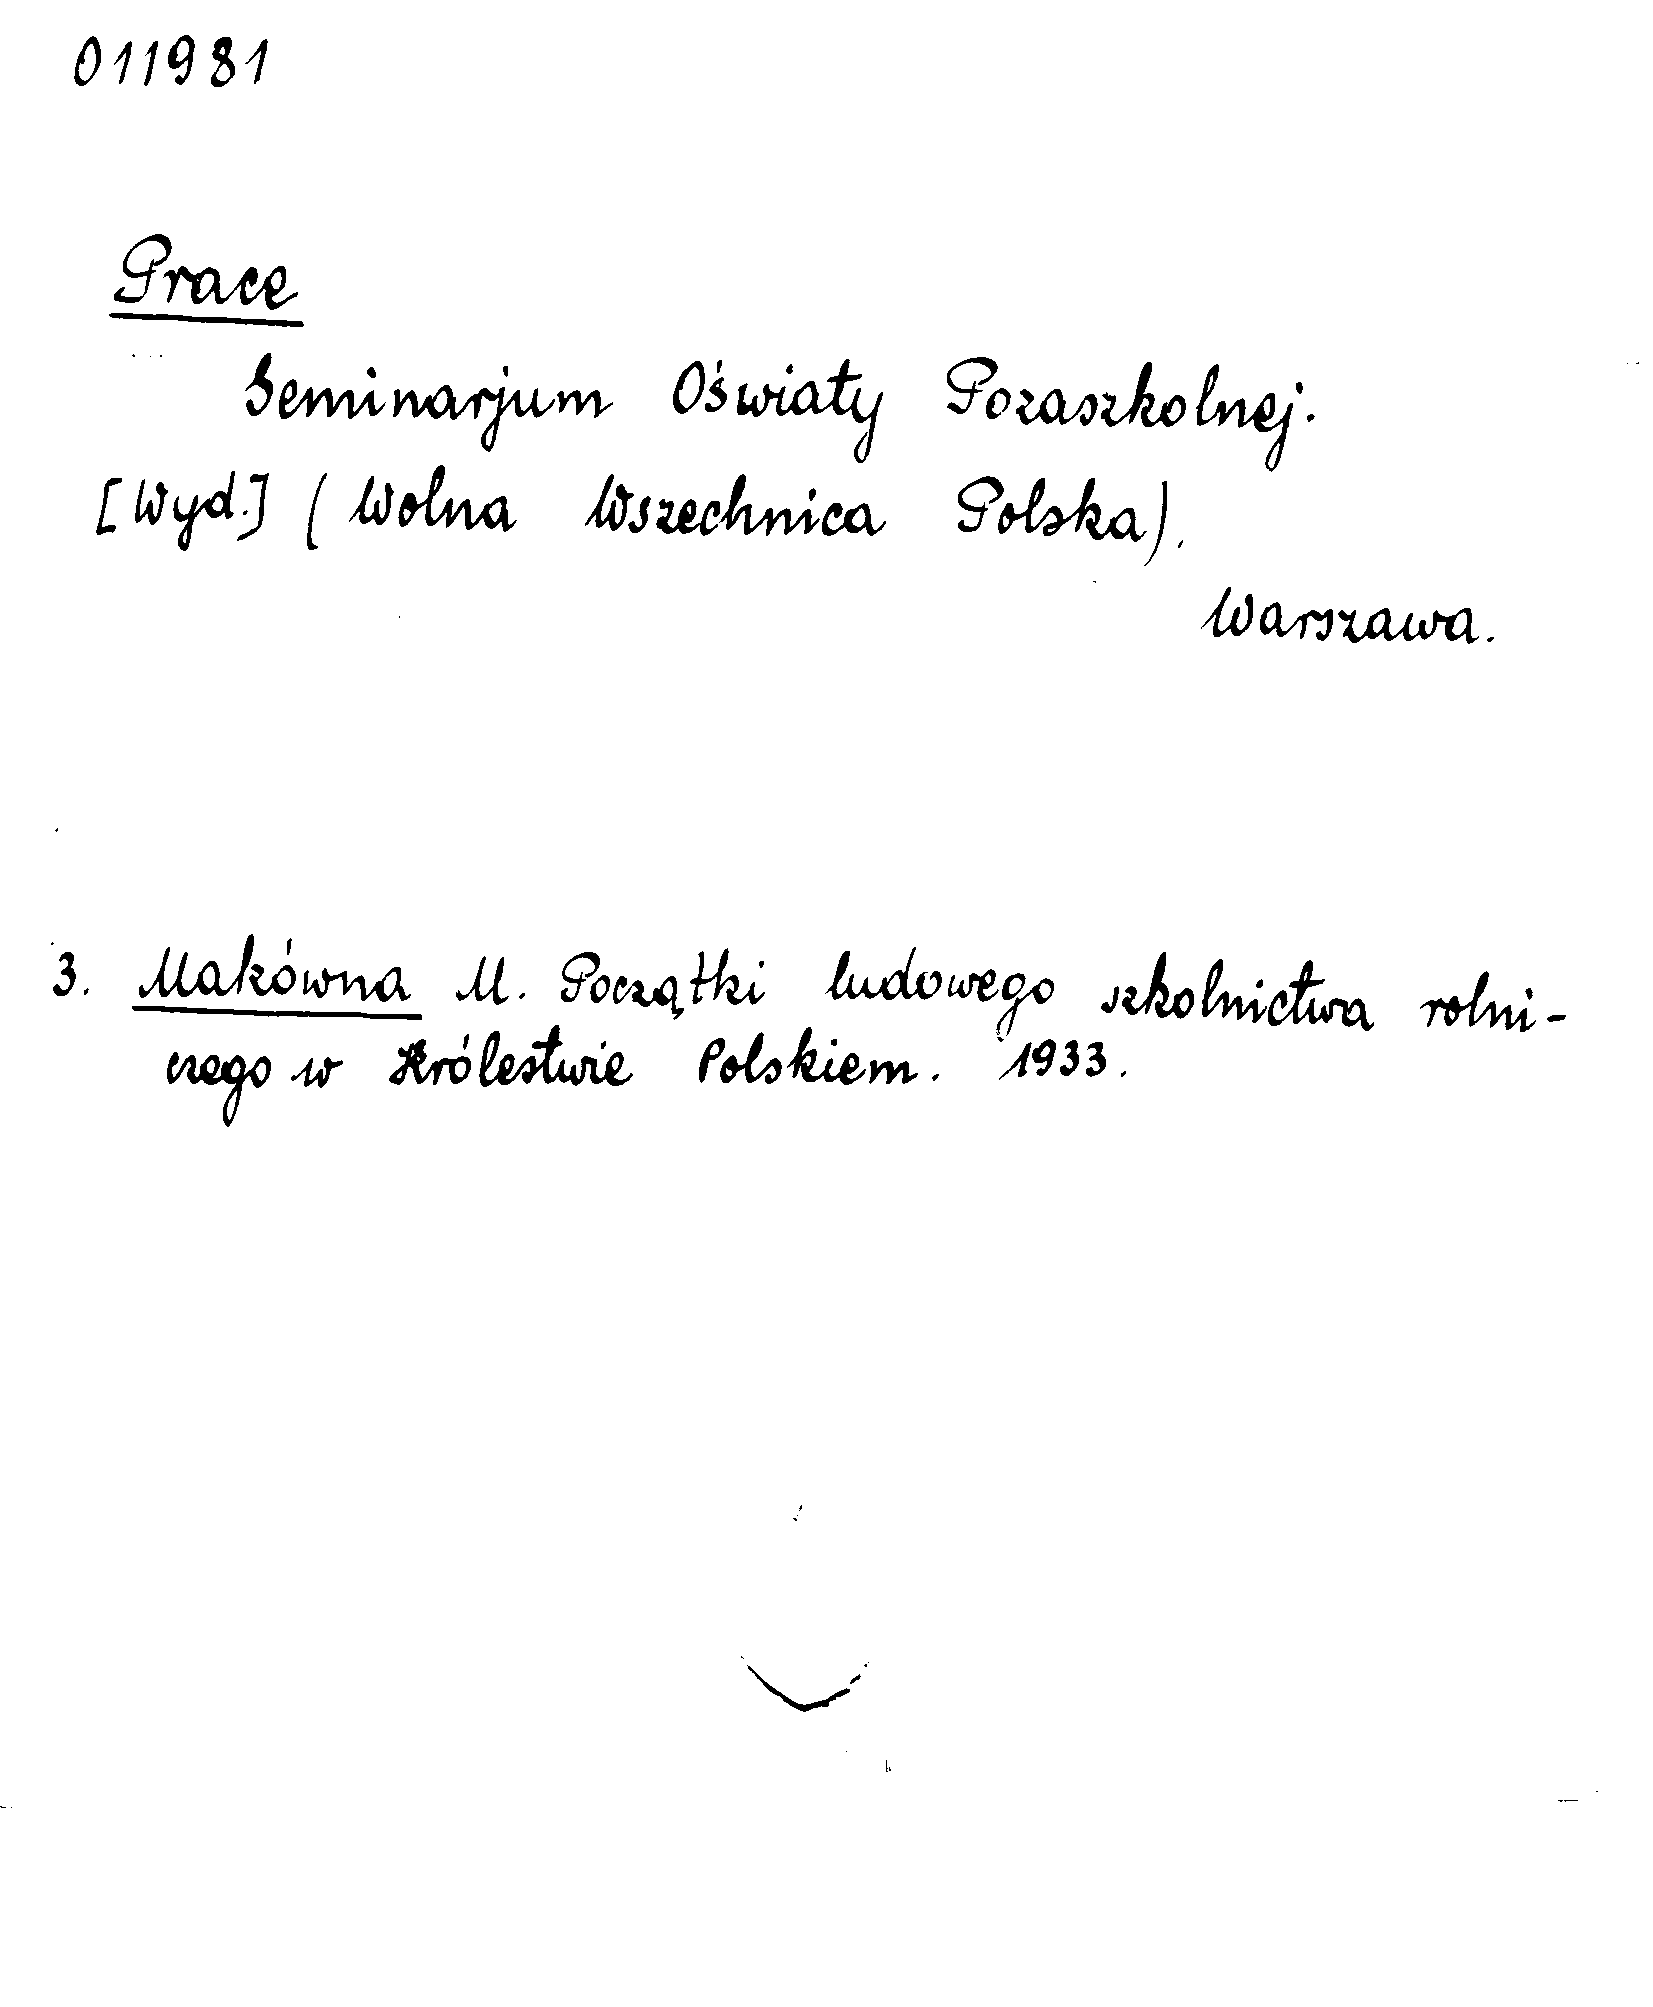 011981
Prace
Seminarjum Oświaty Pozaszkolnej.
[Wyd.] (Wolna Wszechnica Polska).
Warszawa.
3. Makówna M. Początki ludowego szkolnictwa rolni-
czego w Królestwie Polskiem. 1933.